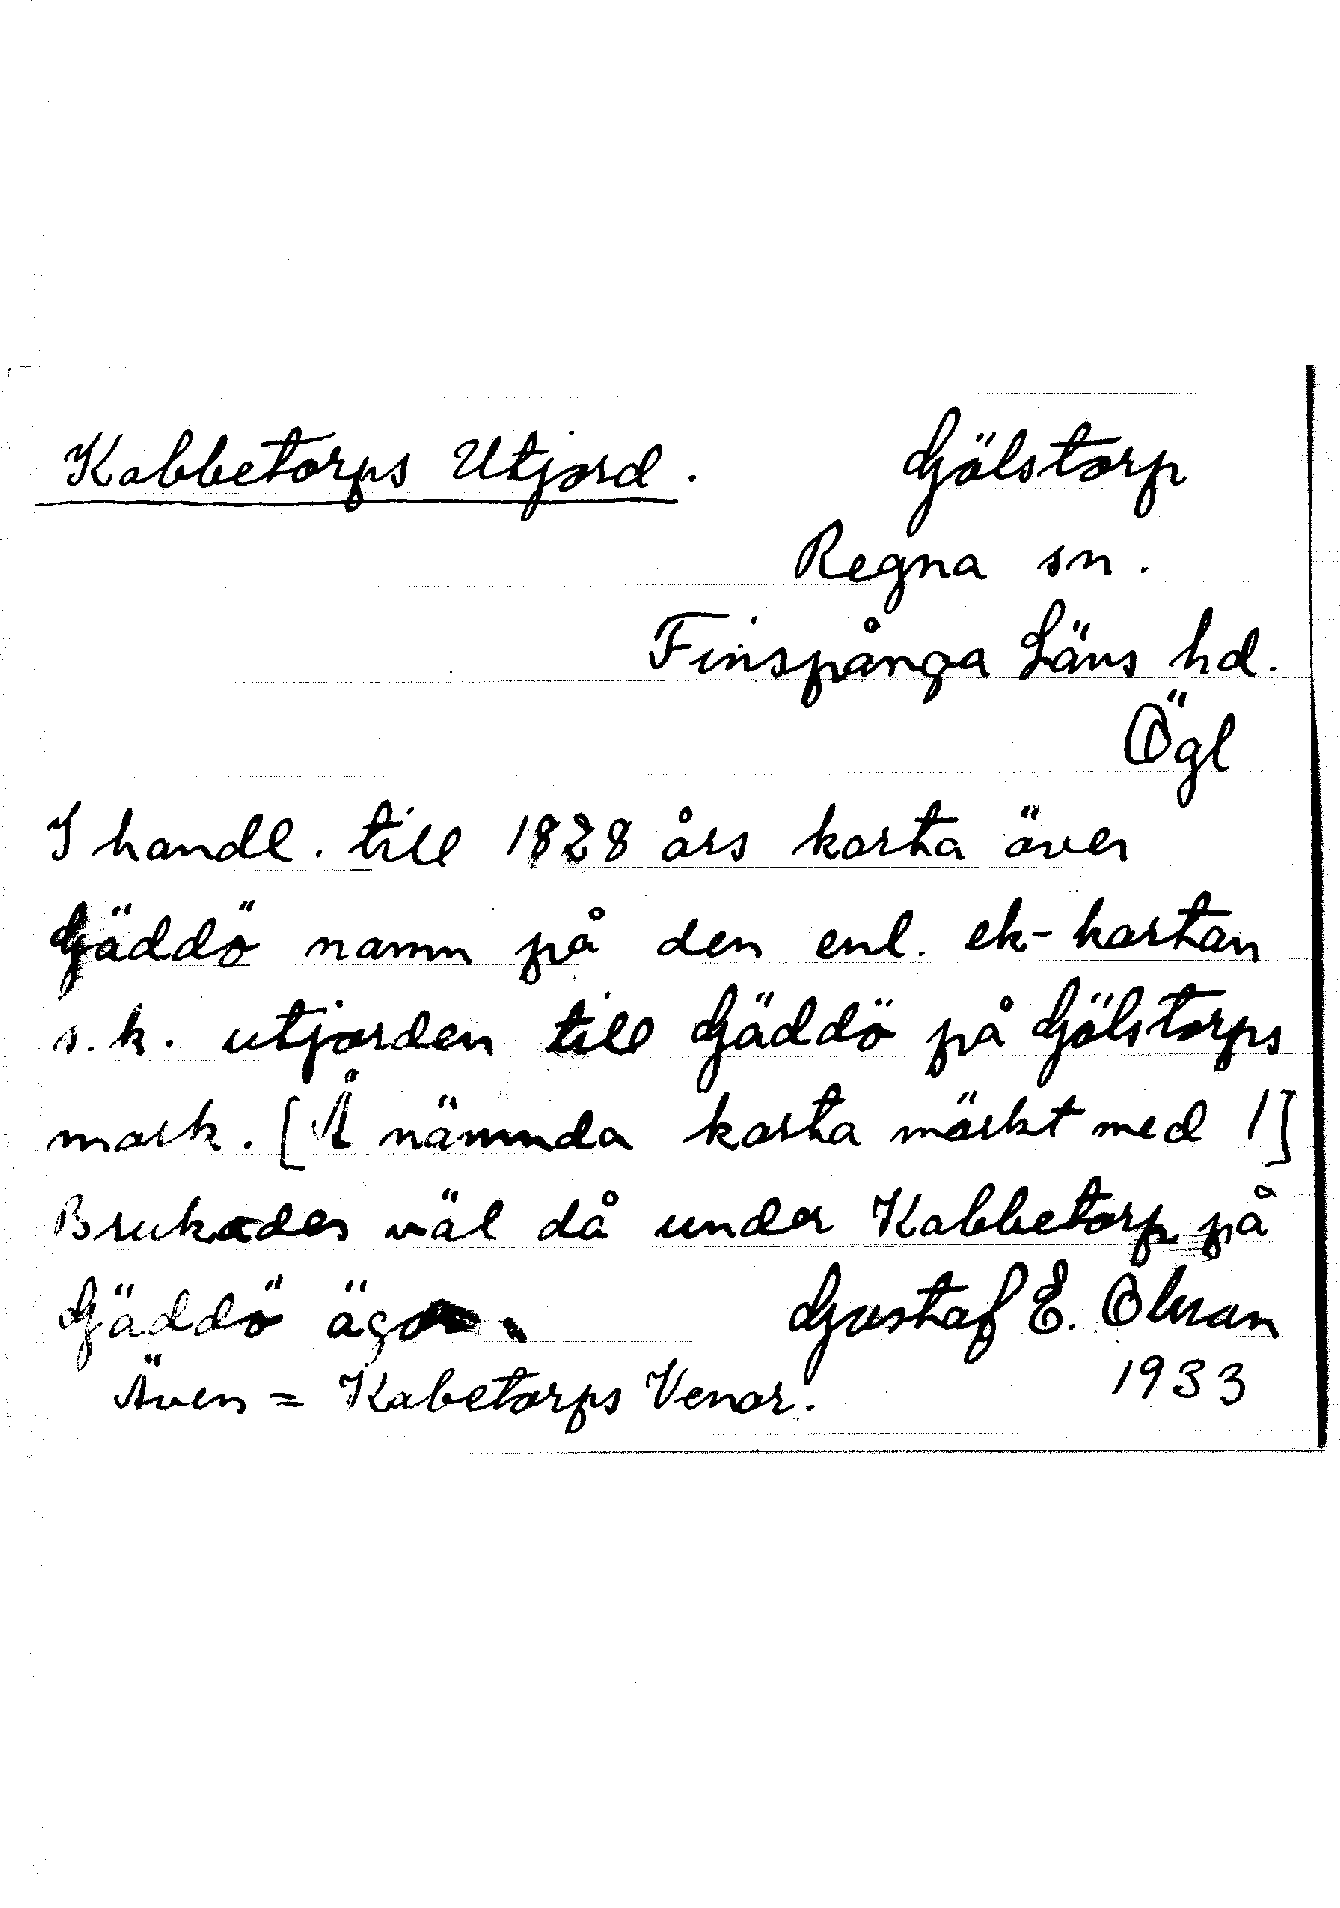 Kabbetorps Utjord.
Gölstorp
Regna sn.
Finspånga Läns hd.
Ögl
I handl. till 1828 års karta över
Gäddö namn på den enl. ek-kartan
s.k. utjorden till Gäddö på Gölstorps
mark. [Å nämnda karta märkt med 1]
Brukades väl då under Kabbetorp på
Gäddö ägor.
Gustaf E. Ölvran
1933
Även = Kabetorps Venor.